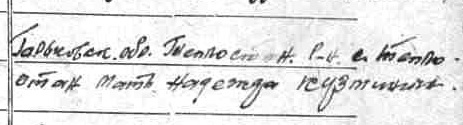 Горьковск. обл. Теплостан. р-н. с. Тепло-
стан мать Надежда Кузминич.